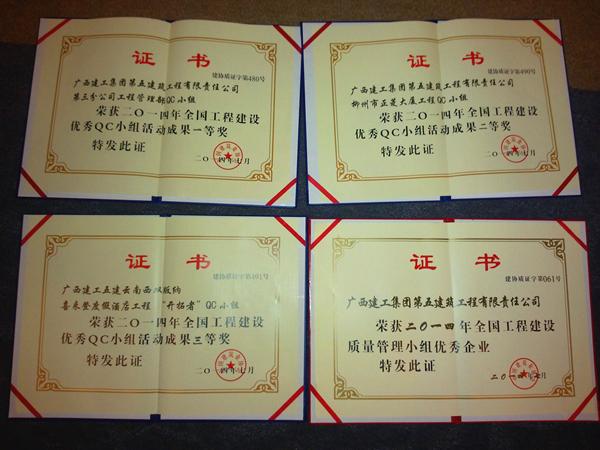 证 书
建协质证字第480号
广西建工集团第五建筑工程有限责任公司
第三分公司工程管理部QC小组
荣获二〇一四年全国工程建设
优秀QC小组活动成果一等奖
特发此证
二〇一四年七月
证 书
建协质证字第490号
广西建工集团第五建筑工程有限责任公司
柳州市正菱大厦工程QC小组
荣获二〇一四年全国工程建设
优秀QC小组活动成果二等奖
特发此证
二〇一四年七月
证 书
建协质证字第491号
广西建工五建云南西双版纳
喜来登度假酒店工程“开拓者”QC小组
荣获二〇一四年全国工程建设
优秀QC小组活动成果三等奖
特发此证
二〇一四年七月
证 书
建协质证字第061号
广西建工集团第五建筑工程有限责任公司
荣获二〇一四年全国工程建设
质量管理小组优秀企业
特发此证
二〇一四年七月